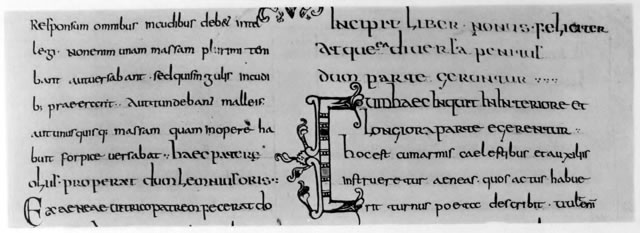 Responsum omnibus incudibus debere intel
legi. Non enim unam massam plurimi ten
bant aut versabant. sed qui singulis incudi
b; praeerant. aut tundebant malleis.
aut unusquisq; massam quam in opere ha
buit forpice versabat. haec pater
olius properat dum lemnius oris:
Ex aeneae
INCIPIT LIBER NONUS FELICITER
Atque ea diversa penitus
dum parte geruntur
Dum haec inquit in interiore et
longiora parte gererentur
hoc est cum armis caelestibus et auxiliis
instrueretur aeneas. quos actus habue
rit turnus poeta describit.